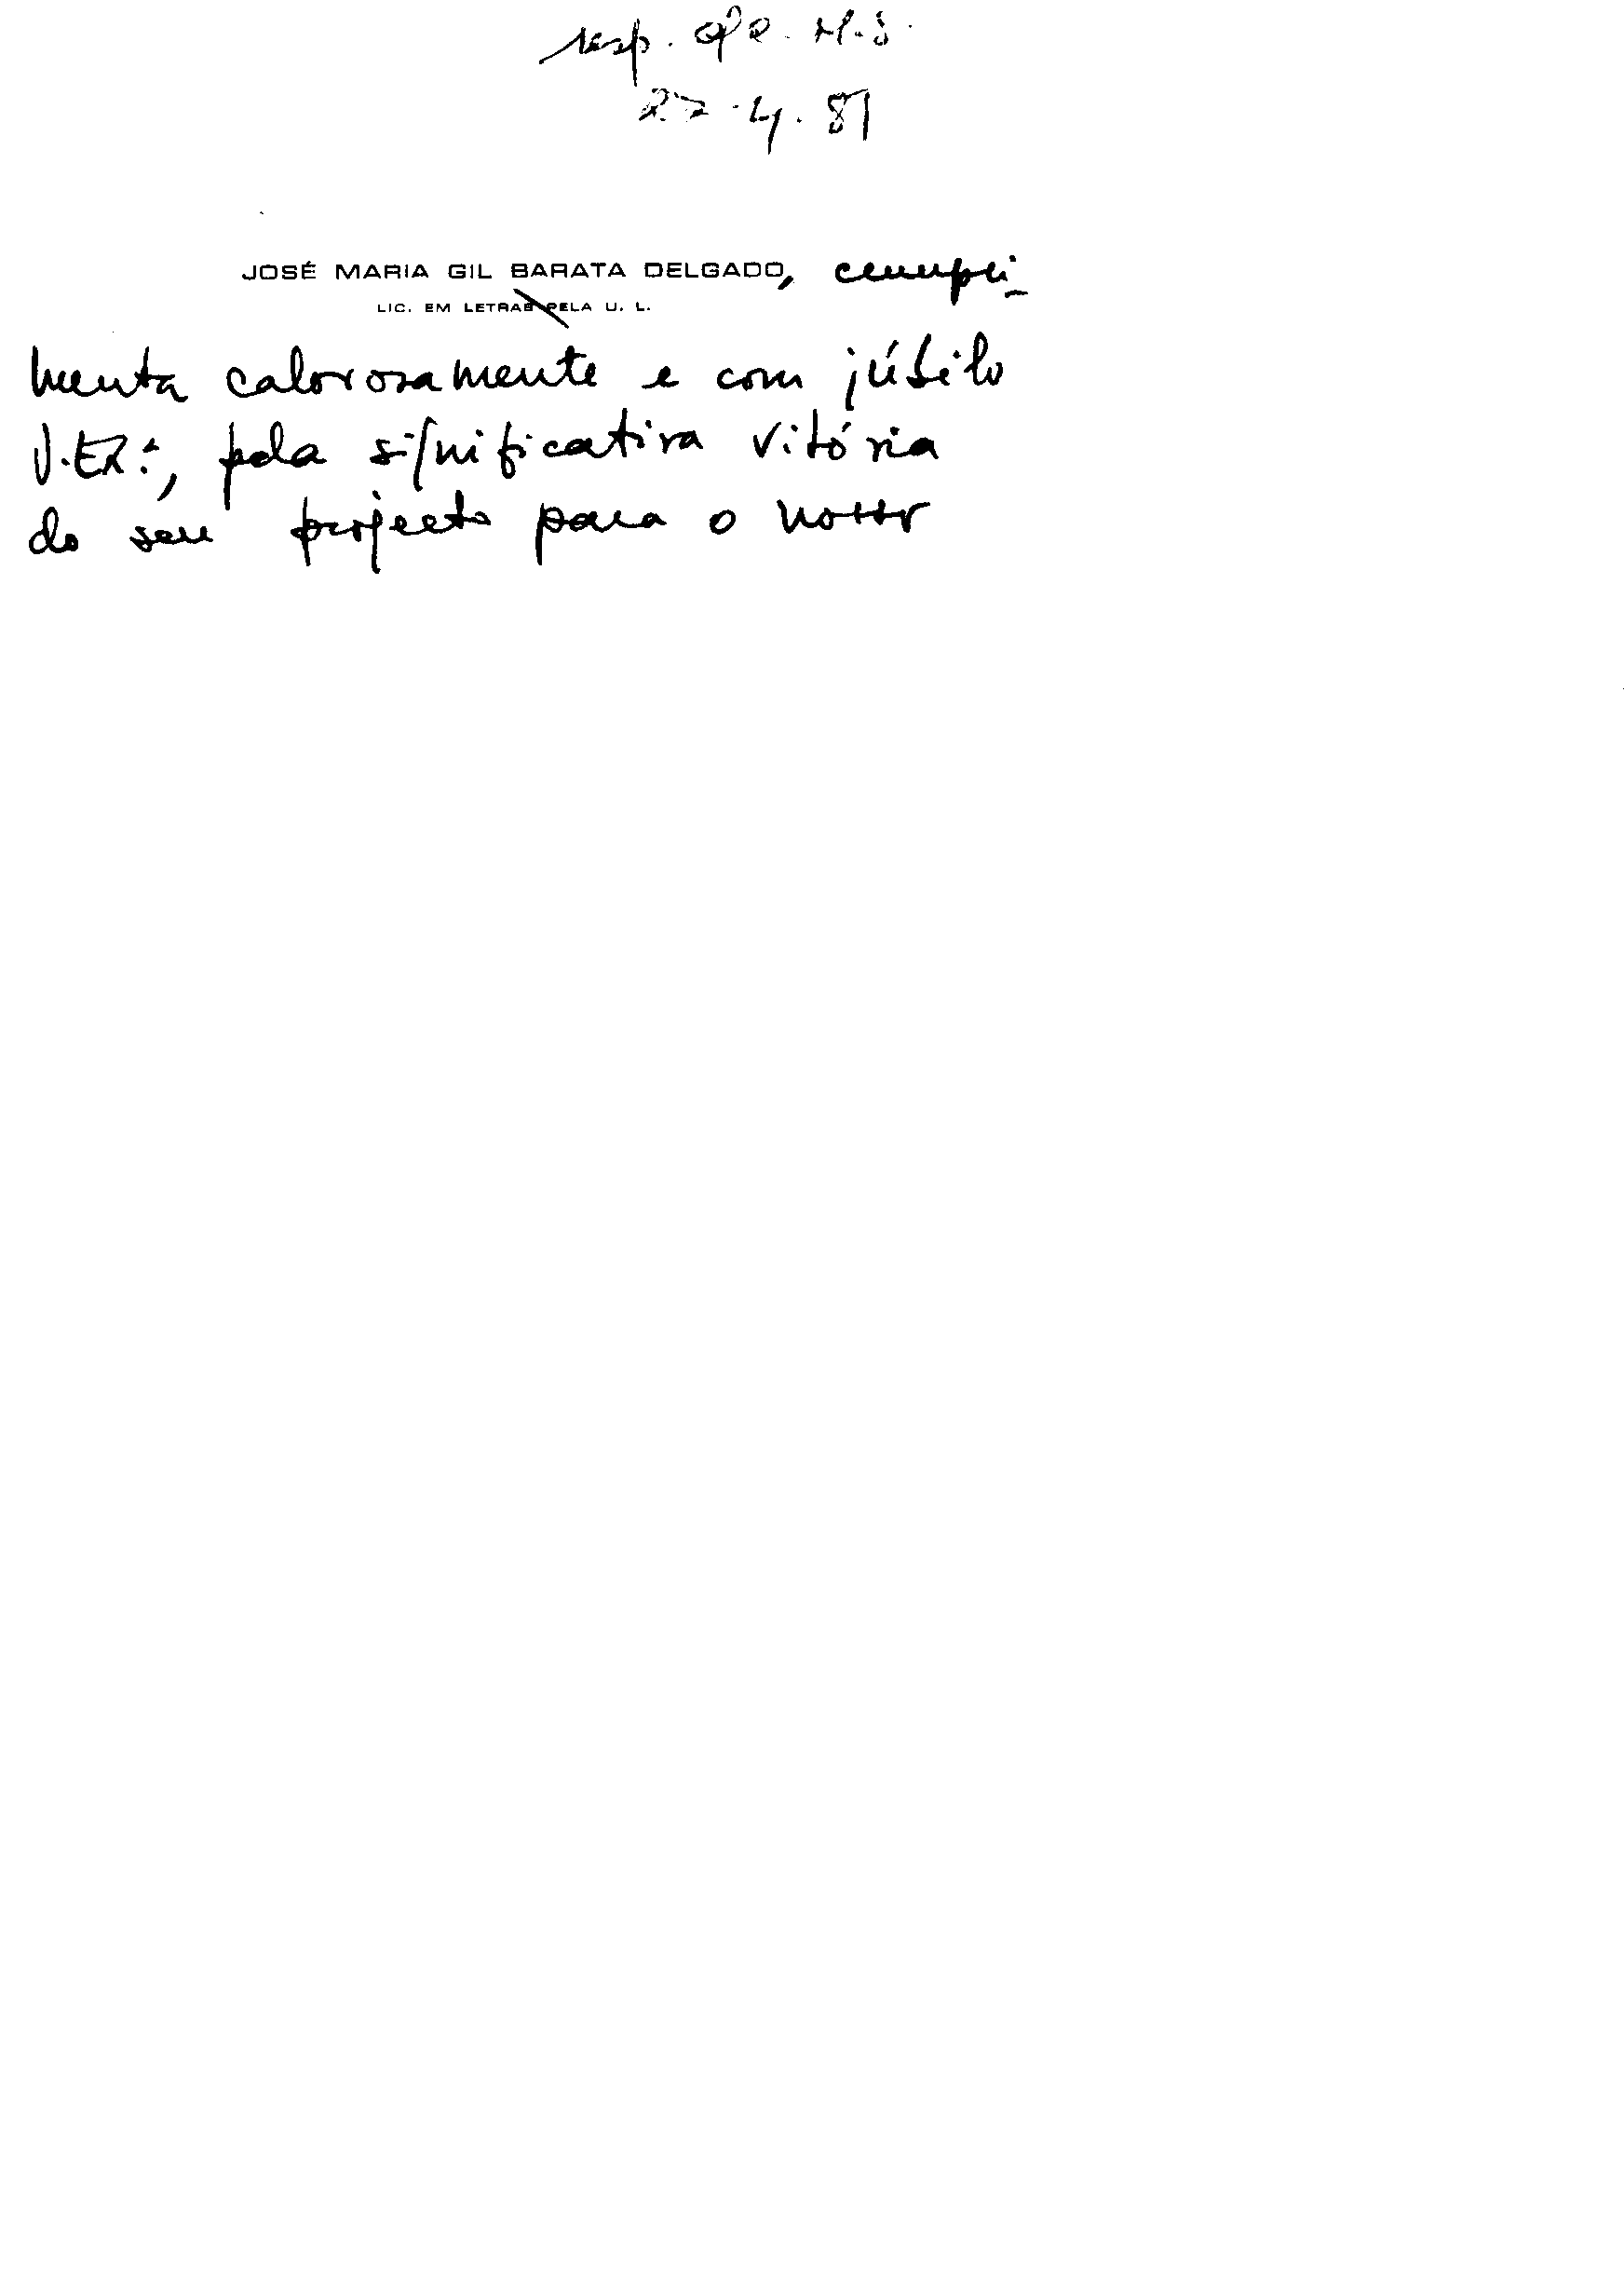 resp. M.S.
27.4.81
JOSÉ MARIA GIL BARATA DELGADO, cumpri-
LIC. EM LETRAS PELA U. L.
menta calorosamente e com júbilo
V. Exª, pela significativa vitória
do seu projecto para o nosso